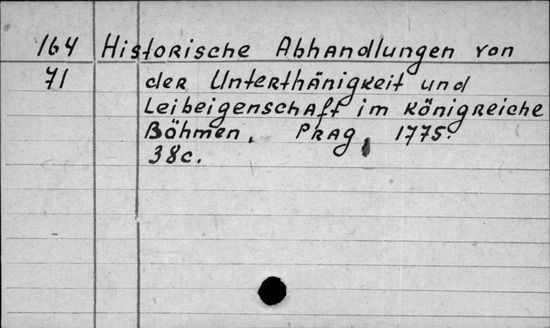 164 Historische Abhandlungen von
71 der Unterthänigkeit und
Leibeigenschaft im Königreiche
Böhmen. Prag, 1775.
38c.